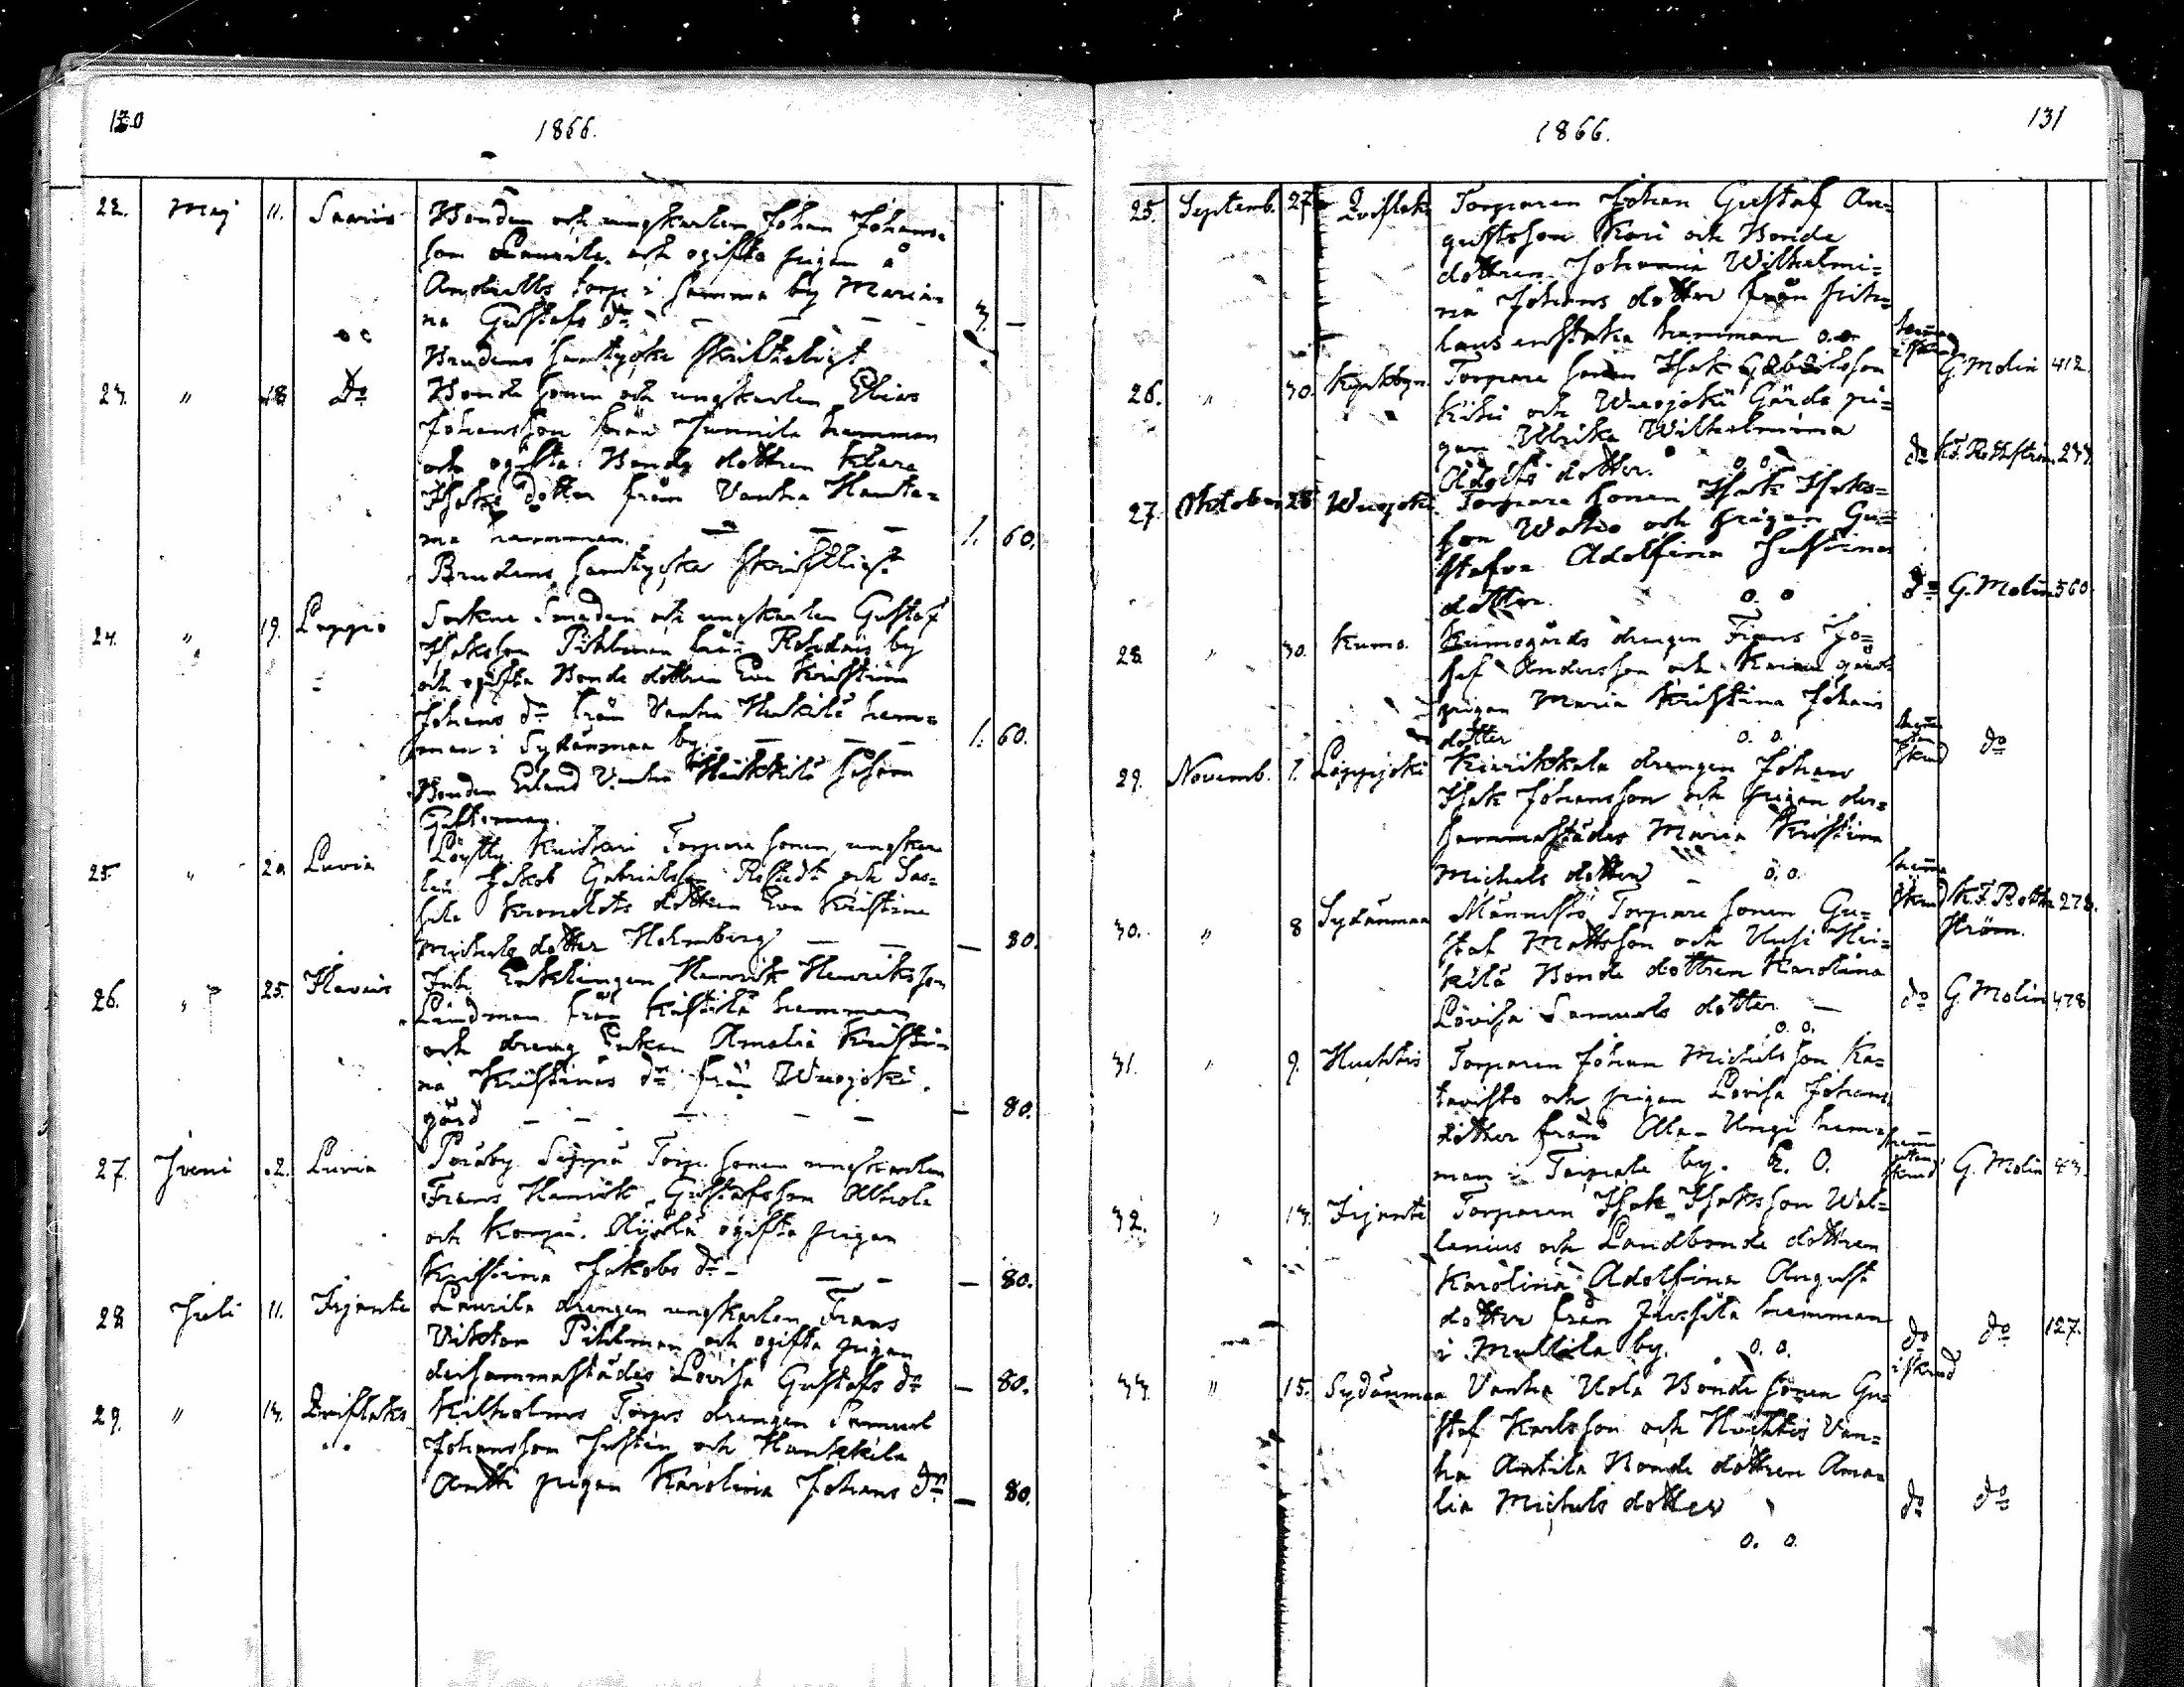 130
1866.
22. Maj 11. Saaris Bonden och ungkarlen Johan Johans-
son Laurila och ogifta pigan å
Anderells torp i samma by Maria-
na Gustafs dr. — — — 3. —
Brudens samtycke skriftligt
23. " 18. do Bonde sonen och ungkarlen Elias
Johansson från Junnila hemman
och ogifta Bonde dottren Klara
Isaks dotter från Vanha Hanta-
ma hemman. — — — 1. 60.
Brudens samtycke skriftligt
24. " 19. Leppio Sockne Smeden och ungkarlen Gustaf
Isaksson Pihlman från by
och ogifta Bonde dottren Eva Kristina
Johans dr från Vanha Heikilä hem-
man i Sydänmaa by. — — — 1. 60.
Bonden Erland Vanha Heikkilä såsom
Giftoman.
25. " 20. Luvia Löytty Knistari Torpare sonen, ungkar-
len Jakob Gabrielsson och Sas-
sila Kronolots dottren Eva Kristina
Michels dotter Holmberg — — — 80.
26. " 25. Havais Inh. Enklingen Henrik Henriksson
Lindman från Kistilä hemman
och dreng Enkan Amalia Kristi-
na Kristinas dr från Wuojoki
gård — — — — — — 80.
27. Juni 2. Luvia Poräby Seppä Torp. sonen ungkarlen
Frans Henrik Gustafsson Alhola
och Korpi. ogifta pigan
Kristina Jakobs dr — — — — 80.
28. Juli 11. Irjante Laurila drengen ungkarlen Frans
Viktor Pihlman och ogifta pigan
dersammastädes Lovisa Gustafs dr — 80.
29. " 13. Qvistlaks Kilholms Torps drengen Samuel
Johansson Justin och Hankkila
Antti pigan Karolina Johans dr — 80.
1866.
131
25. Septemb. 27. Qvistlaks Torparen Johan Gustaf Au-
gustsson Kari och Bonde
dottren Johanna Wilhelmi-
na Johans dotter från
lans enstaka hemman o.o. G. Molin 412.
26. " 30. Kyrkbyn. Torpare sonen Isak Gabrielsson
Kihi och Wuojoki Gårds pi-
gan Ulrika Wilhelmina
Adolfs dotter. o o do K. F. Rothström 233.
27. Oktober 28. Wuojoki Torpare sonen Isak Isaks-
son Wahio och pigan Gu-
stafva Adolfina Justinas
dotter. o. o do G. Molin 560.
28. " 30. Kumo. Kumogårds drengen Frans Jo-
sef Andersson och Kumo gårds
pigan Maria Kristina Johans
dotter o. o. do
29. Novemb. 1. Lappijoki Kiviskkala drengen Johan
Isak Johansson och pigan der-
sammastädes Maria Kristina
Michels dotter — o. o. K. F. Roth- 278.
ström.
30. " 8. Sydänmaa Männistö Torpare sonen Gu-
staf Mattsson och Uusi Hei-
kilä Bonde dottren Karolina
Lovisa Samuels dotter — do G. Molin 478
o. o.
31. " 9. Huhtis Torparen Johan Michelsson Ka-
tavisto och pigan Lovisa Johans
dotter från Ala-Ungi hem-
man i Taipale by. E. O. G. Molin 43.
32. " 13. Irjante Torparen Isak Isaksson Wal-
lenius och Landbonde dottren
Karolina Adolfina August
dotter från Jussila hemman
i Mullila by. o. o. do do 127.
33. " 15. Sydänmaa Vanha Uola Bonde sonen Gu-
staf Karlsson och Huhtis Van-
ha Antila Bonde dottren Ama-
lia Michels dotter do do
o. o.